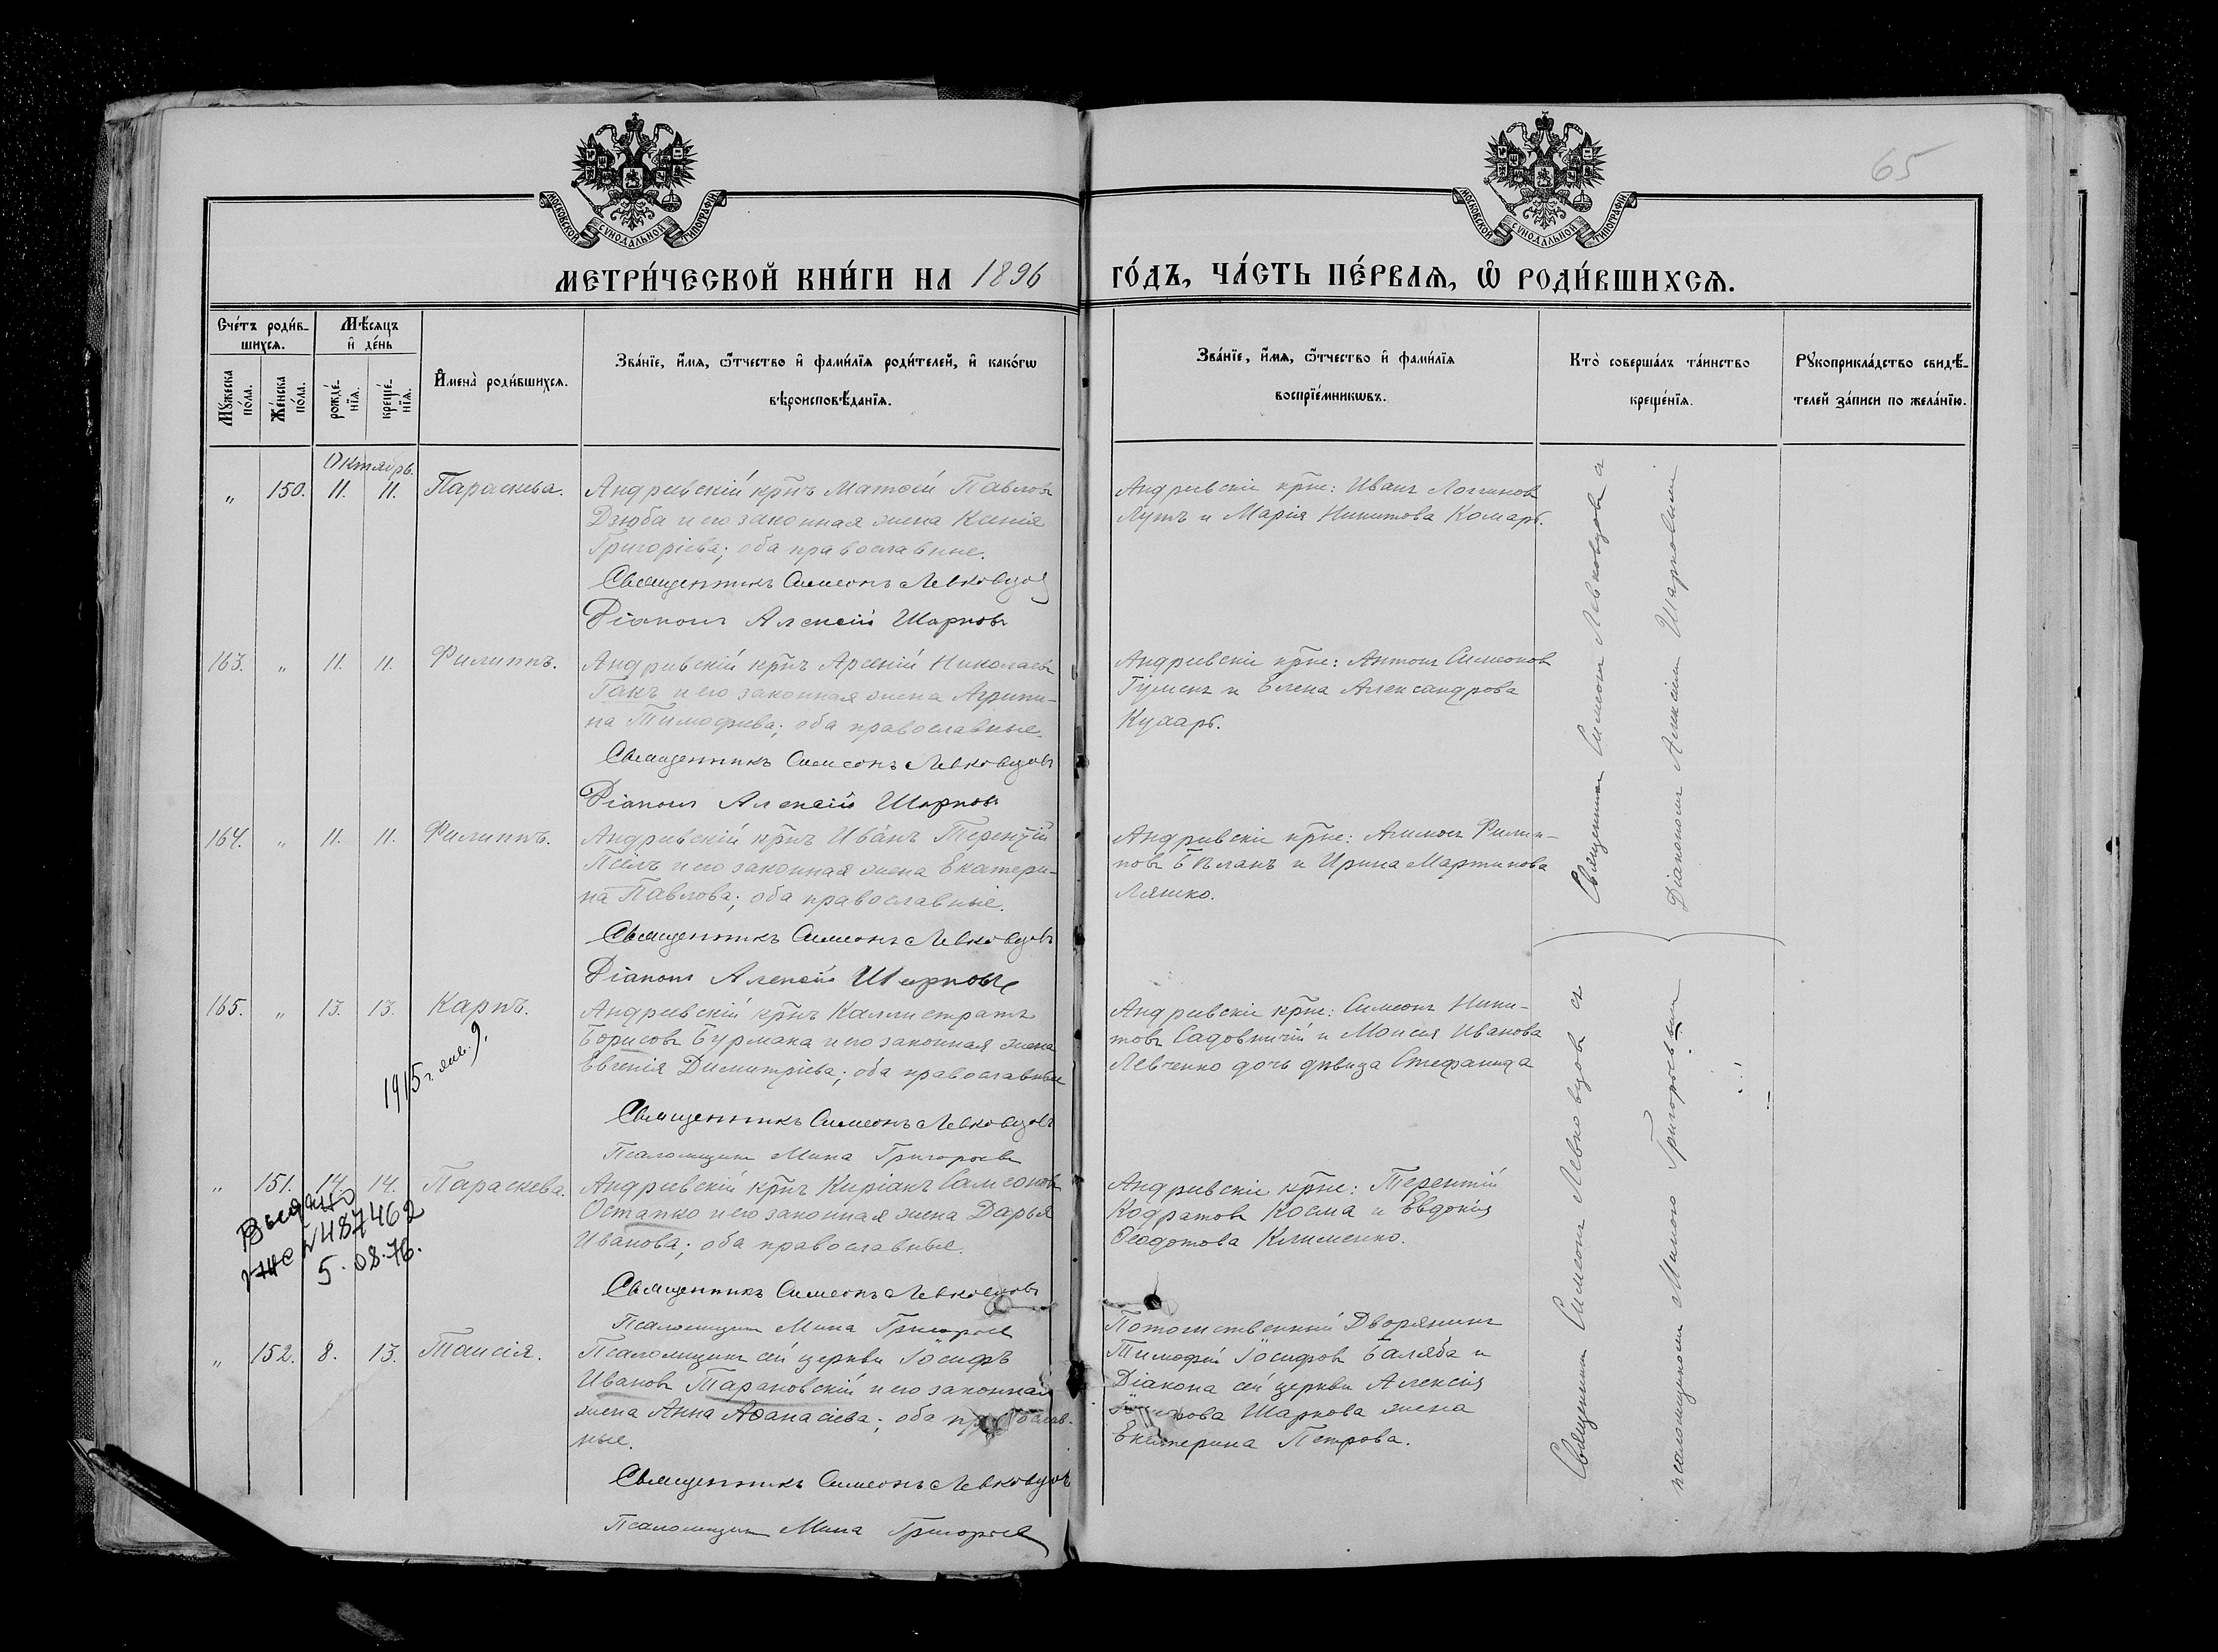 МОСКОВСКОЙ СѴНОДАЛЬНОЙ ТИПОГРАФІИ
МОСКОВСКОЙ СѴНОДАЛЬНОЙ ТИПОГРАФІИ
65
МЕТРИ́ЧЕСКОЙ КНИ́ГИ НА 1896 ГО́ДЪ, ЧА́СТЬ ПЕ́РВАѦ, Ѡ҆ РОДИ́ВШИХСѦ.
Сче́тъ роди́в-
шихсѧ.
Мꙋ́жеска по́ла.
Же́нска по́ла.
Мѣ́сѧцъ
и҆ де́нь
рожде́-
нїѧ.
креще́-
нїѧ.
И҆мена̀ роди́вшихсѧ.
Зва́нїе, и҆́мѧ, ѻ҆́тчество и҆ фами́лїѧ роди́телей, и҆ како́гѡ
вѣроисповѣ́данїѧ.
Зва́нїе, и҆́мѧ, ѻ҆́тчество и҆ фами́лїѧ
воспрїе́мникѡвъ.
Кто̀ соверша́лъ та́инство
креще́нїѧ.
Рꙋкоприкла́дство свидѣ́-
телей за́писи по жела́нїю.
Октябрь.
„ 150. 11. 11. Параскева.
Андреевскій крн̃ъ Матѳей Павловъ
Дзюба и его законная жена Ксенія
Григоріева; оба православные.
Священникъ Симеонъ Левковцовъ
Діаконъ Алексій Шарковъ
Андреевскіе крн̃е: Иванъ Логгиновъ
Лутъ и Марія Никитова Комаръ.
163. „ 11. 11. Филиппъ.
Андреевскій крн̃ъ Арсеній Николаевъ
Гакъ и его законная жена Агрипи-
на Тимофеева; оба православные.
Священникъ Симеонъ Левковцовъ
Діаконъ Алексій Шарковъ
Андреевскіе крн̃е: Антонъ Симеоновъ
Гуменъ и Елена Александрова
Кухарь.
164. „ 11. 11. Филиппъ.
Андреевскій крн̃ъ Иванъ Терентій
Псёлъ и его законная жена Екатери-
на Павлова; оба православные.
Священникъ Симеонъ Левковцовъ
Діаконъ Алексій Шарковъ
Андреевскіе крн̃е: Филип-
повъ Бѣланъ и Ирина Мартинова
Ляшко.
Священникъ Симеонъ Левковцовъ съ
Діакономъ Алексіемъ Шарковымъ
165. „ 13. 13. Карпъ.
1915 г. янв. 9.
Андреевскій крн̃ъ Каллистратъ
Борисовъ Бурмака и его законная жена
Евгенія Димитріева; оба православные
Священникъ Симеонъ Левковцовъ
Псаломщикъ Мина Григорьевъ
Андреевскіе крн̃е: Симеонъ Ники-
товъ Садовничій и Моисея Иванова
Левченко дочь дѣвица Стефанида
„ 151. 14. 14. Параскева.
Выдано
N 487462
5.08.76.
Андреевскій крн̃ъ Киріакъ Самсоновъ
Остапко и его законная жена Дарья
Иванова; оба православные.
Священникъ Симеонъ Левковцовъ
Псаломщикъ Мина Григорьевъ
Андреевскіе крн̃е: Терентій
Кодратовъ Косма и Евдокія
Ѳеодотова Клименко.
„ 152. 8. 13. Таисія.
Псаломщикъ сей церкви Іосифъ
Ивановъ Тарановскій и его законная
жена Анна Аѳанасіева; оба православ-
ные.
Священникъ Симеонъ Левковцовъ
Псаломщикъ Мина Григорьевъ
Потомственный Дворянинъ
Тимофей Іосифовъ Баляба и
Діакона сей церкви Алексія
Шаркова жена
Екатерина Петрова.
Священникъ Симеонъ Левковцовъ съ
псаломщикомъ Миною Григорьевымъ